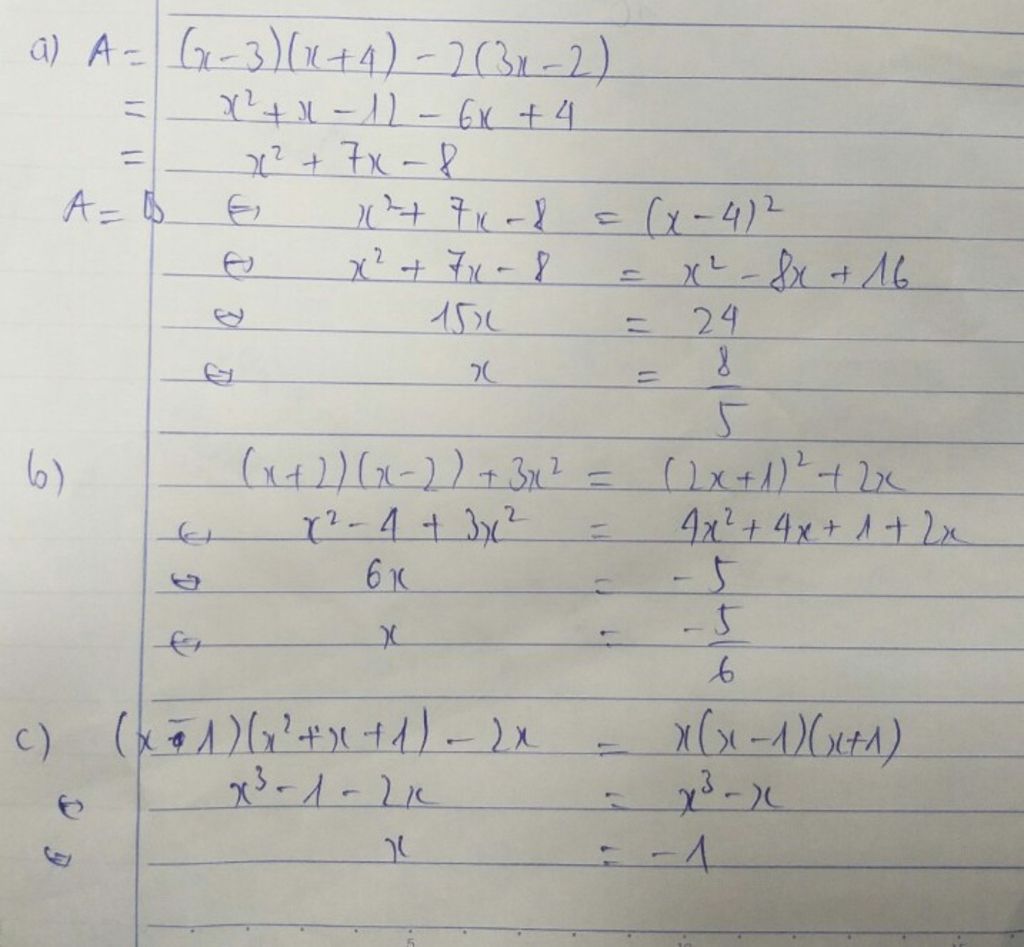 a) A = (x-3)(x+4) - 2(3x-2)
= x² + x - 12 - 6x + 4
= x² + 7x - 8
A = B ⇔ x² + 7x - 8 = (x-4)²
⇔ x² + 7x - 8 = x² - 8x + 16
⇔ 15x = 24
⇔ x = 8/5
b) (x+2)(x-2) + 3x² = (2x+1)² + 2x
⇔ x² - 4 + 3x² = 4x² + 4x + 1 + 2x
⇔ 6x = -5
⇔ x = -5/6
c) (x-1)(x²+x+1) - 2x = x(x-1)(x+1)
⇔ x³ - 1 - 2x = x³ - x
⇔ x = -1